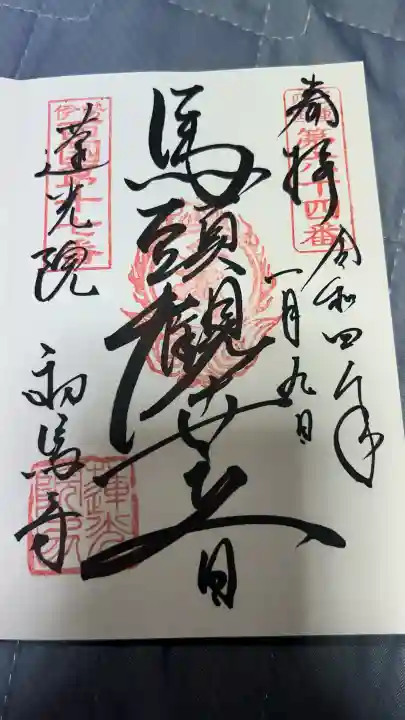 奉拝
令和四年
一月九日
馬頭観世音
蓮光院
初馬寺